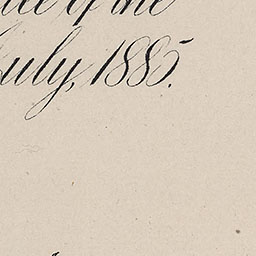 of the
July, 1885.